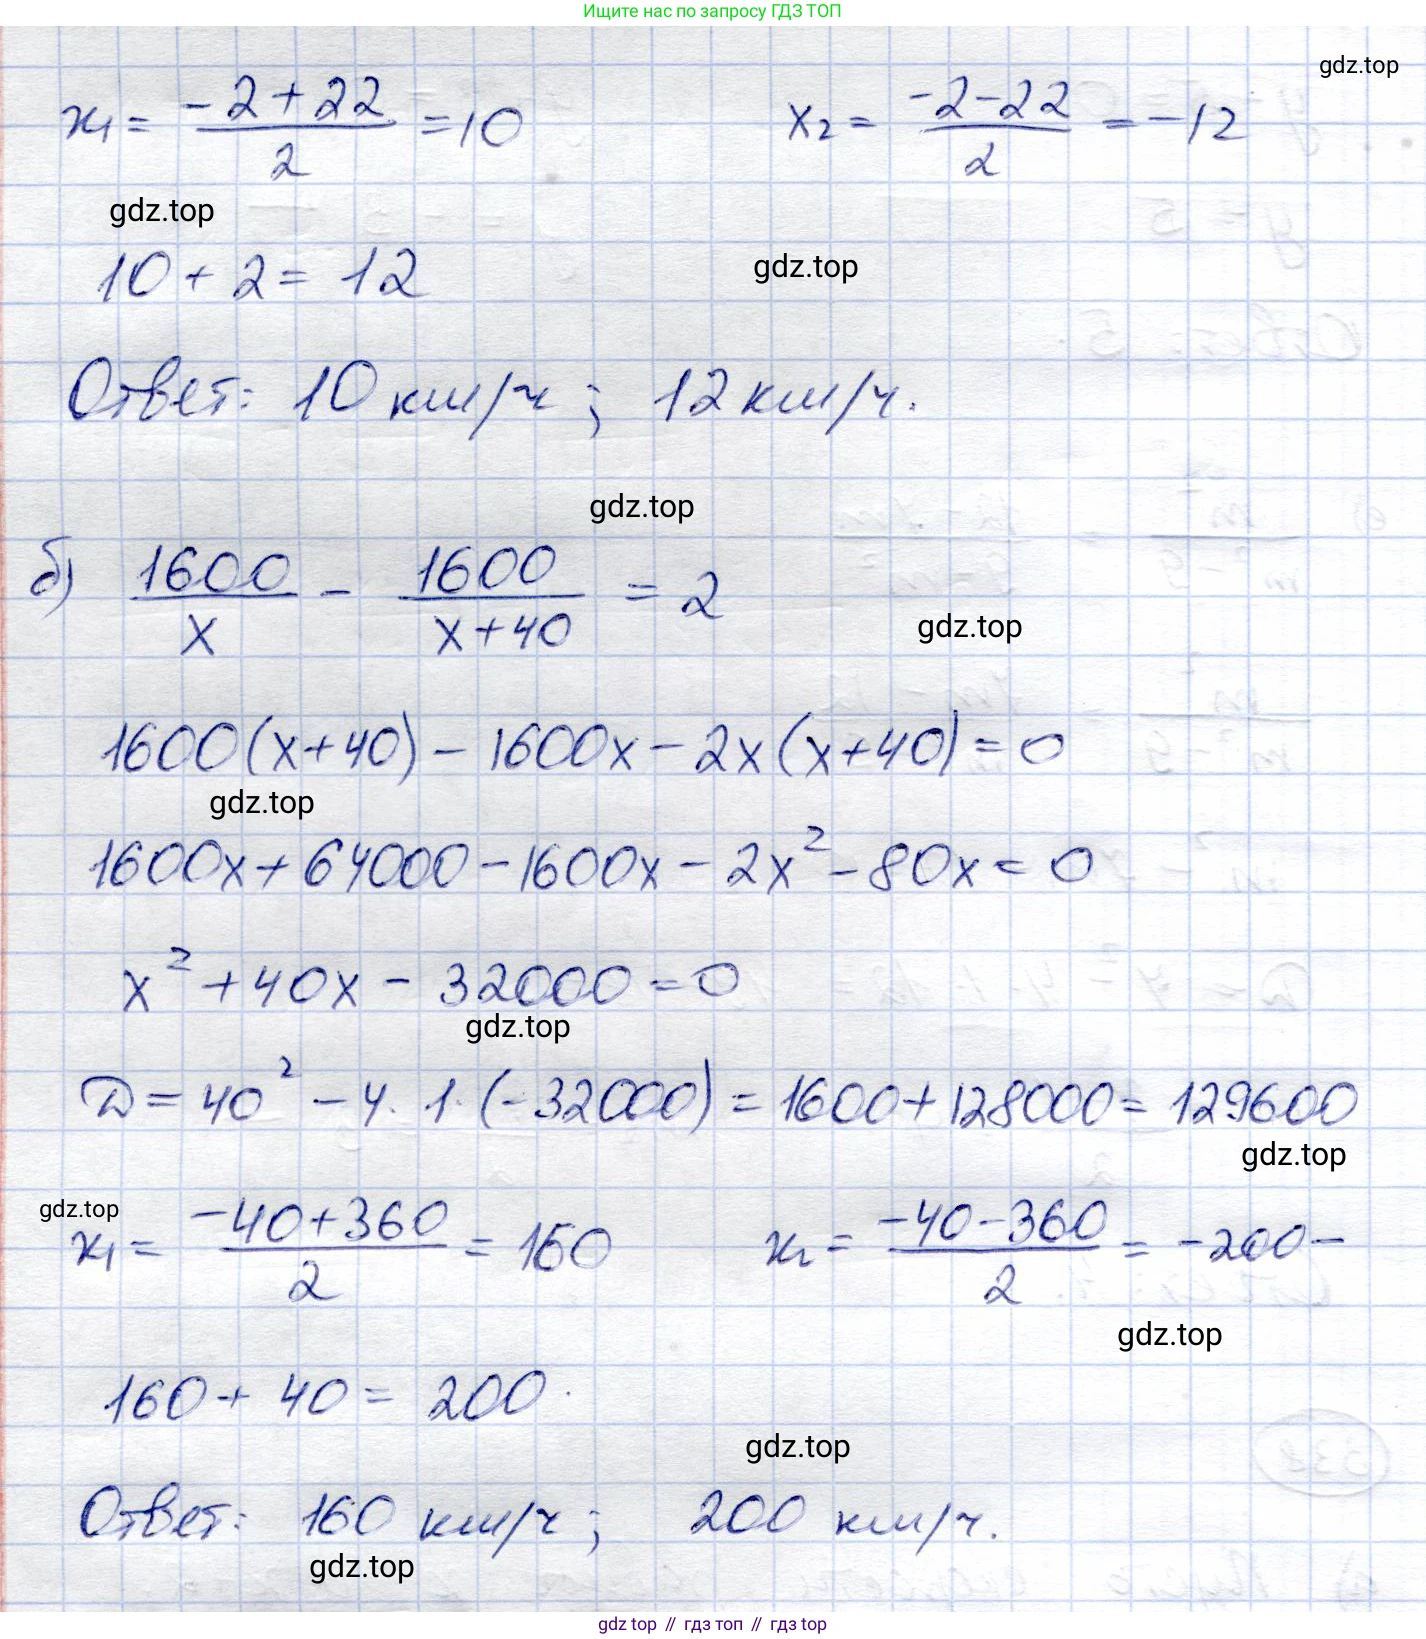 Ищите нас по запросу ГДЗ ТОП
gdz.top
x₁ = (-2+22)/2 = 10    x₂ = (-2-22)/2 = -12
gdz.top
10 + 2 = 12
gdz.top
Ответ: 10 км/ч; 12 км/ч.
gdz.top
б) 1600/x - 1600/(x+40) = 2
gdz.top
1600(x+40) - 1600x - 2x(x+40) = 0
gdz.top
1600x + 64000 - 1600x - 2x² - 80x = 0
x² + 40x - 32000 = 0
gdz.top
D = 40² - 4·1·(-32000) = 1600 + 128000 = 129600
gdz.top
gdz.top
x₁ = (-40+360)/2 = 160    x₂ = (-40-360)/2 = -200 -
gdz.top
160 + 40 = 200.
gdz.top
Ответ: 160 км/ч; 200 км/ч.
gdz.top
gdz top // гдз топ // gdz.top